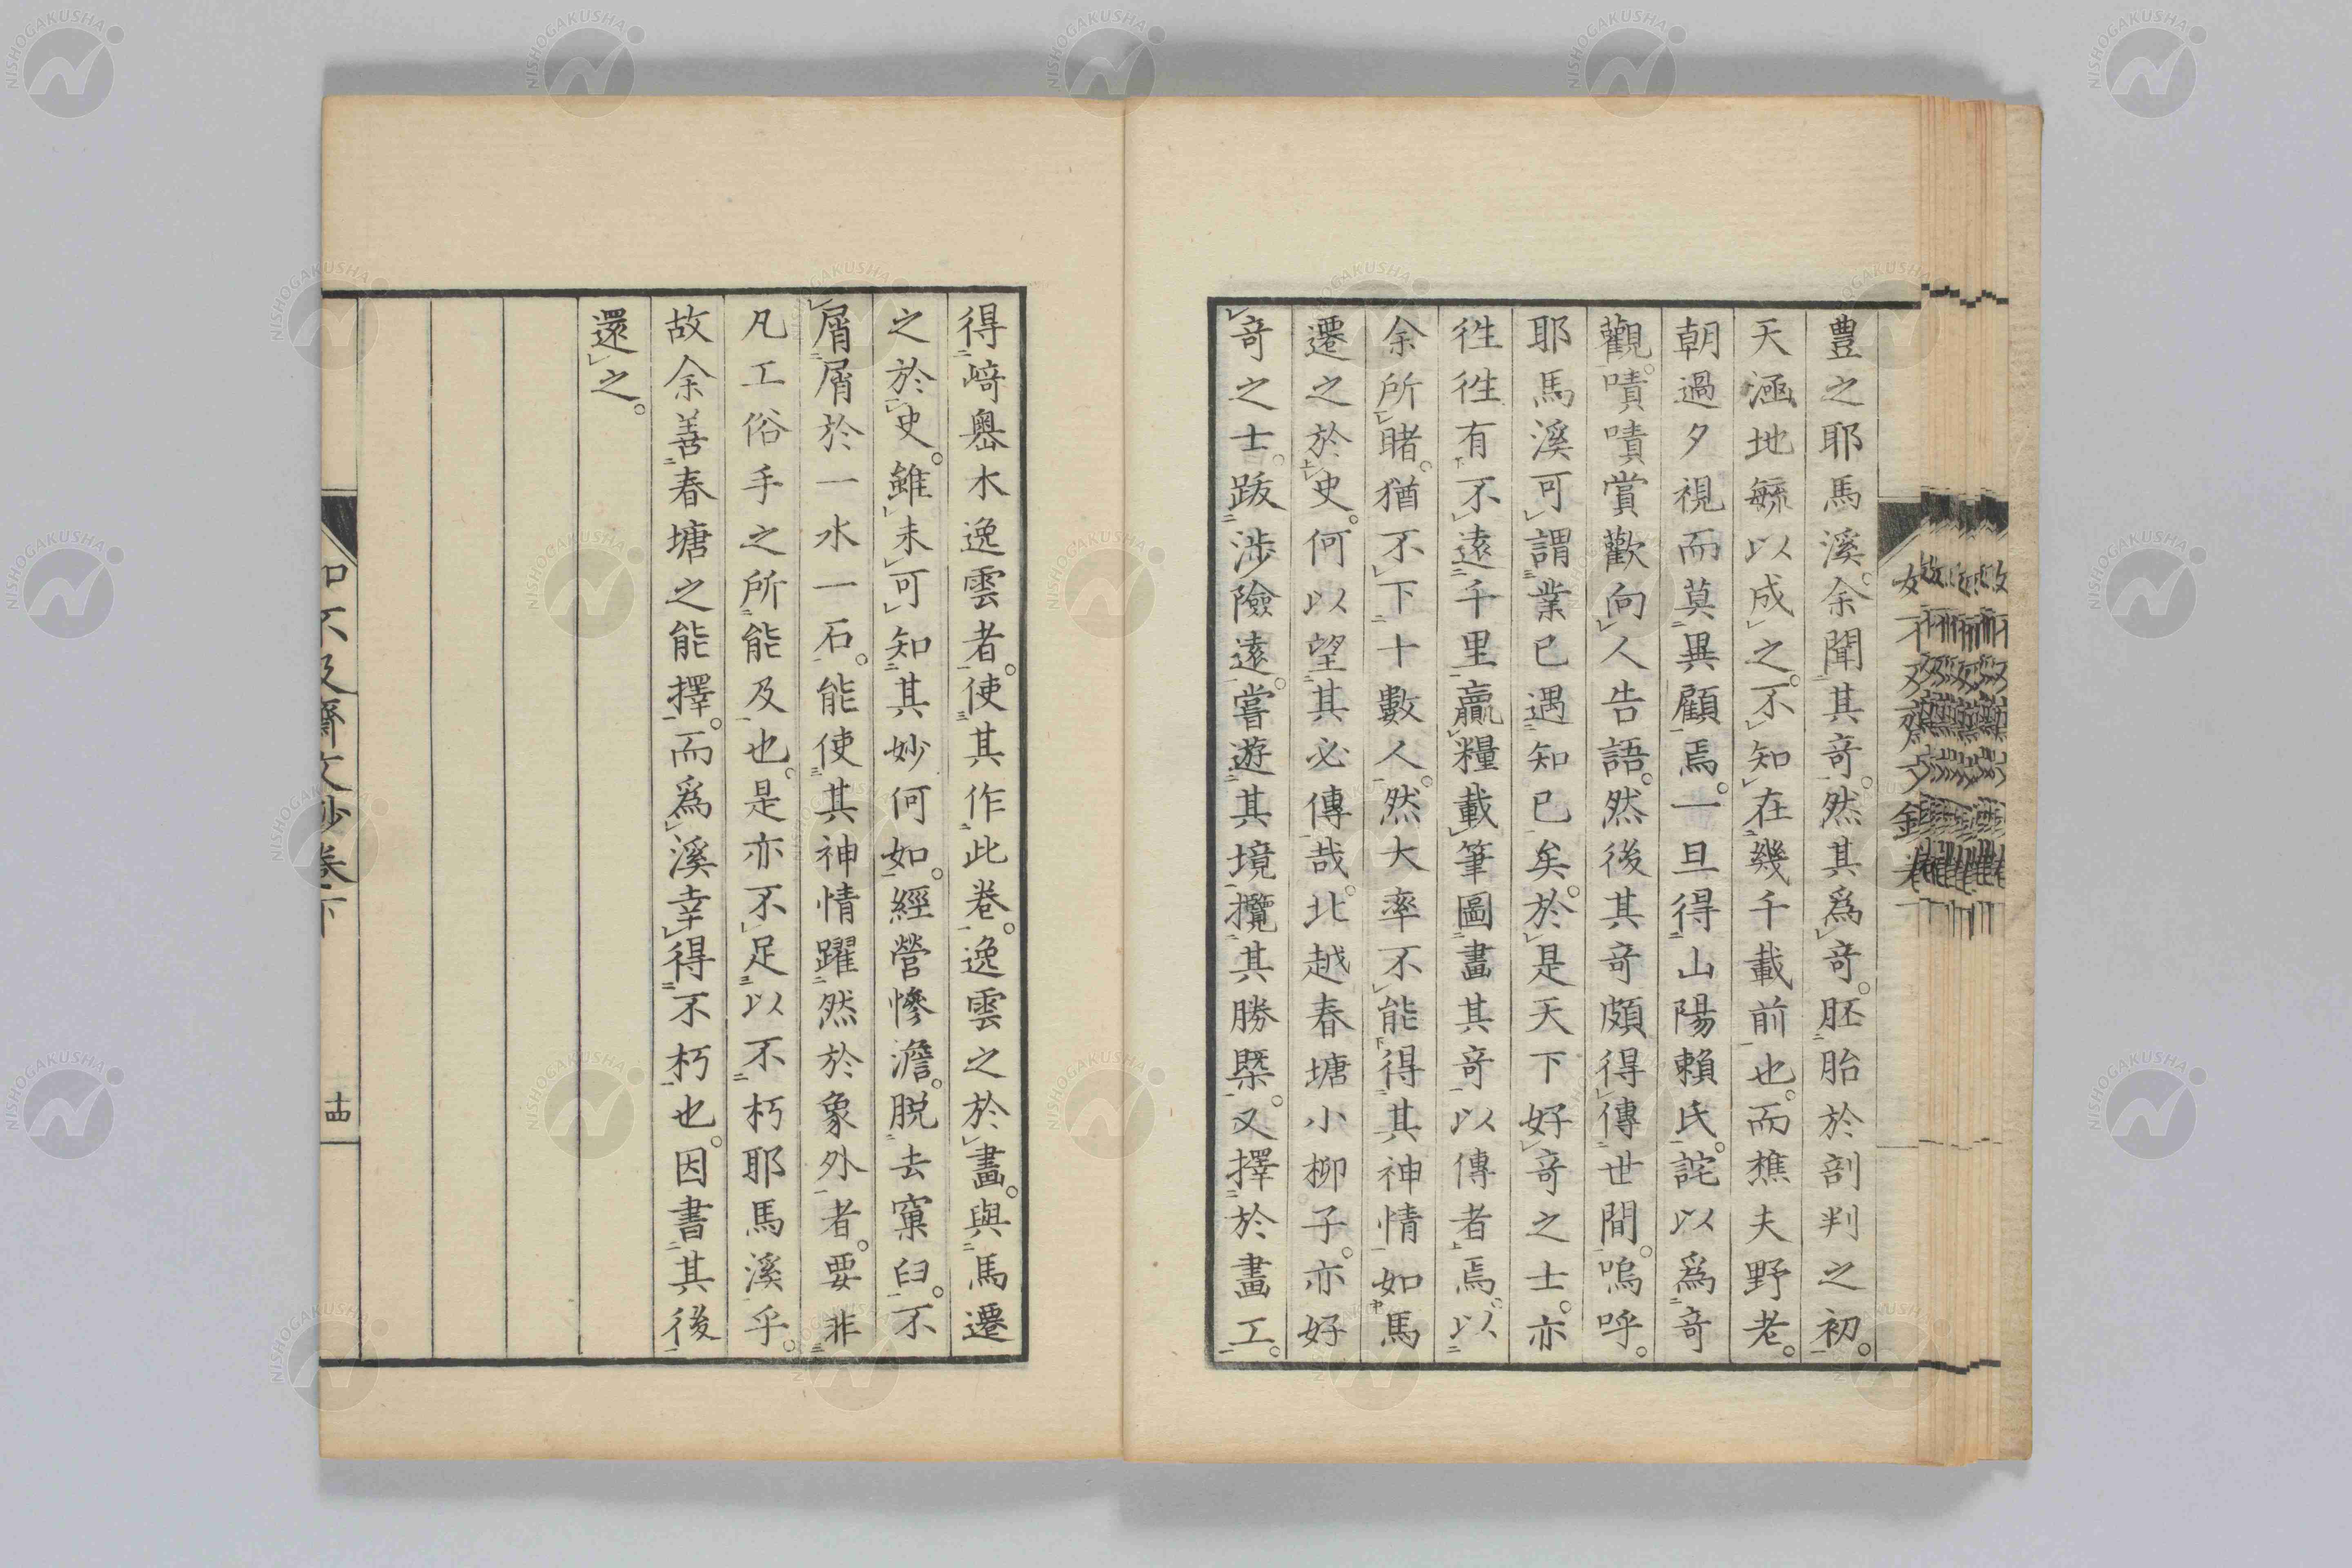 豊之耶馬溪。余聞其奇。然其爲奇。胚胎於剖判之初。
天涵地毓以成之。不知在幾千載前也。而樵夫野老。
朝過夕視而莫異顧焉。一旦得山陽賴氏。詫以爲奇
觀。嘖嘖賞歡向人告語。然後其奇頗得傳世間。嗚呼。
耶馬溪可謂業已遇知已矣。於是天下好奇之士。亦
徃徃有不遠千里贏糧載筆圖畫其奇以傳者焉。以
余所睹。猶不下十數人。然大率不能得其神情如馬
遷之於史。何以望其必傳哉。北越春塘小柳子。亦好
奇之士。跋涉險遠。嘗遊其境攬其勝槩。又擇於畫工。
得﨑嶴木逸雲者。使其作此卷。逸雲之於畫。與馬遷
之於史。雖未可知其妙何如。經營慘澹。脱去窠臼。不
屑屑於一水一石。能使其神情躍然於象外者。要非
凡工俗手之所能及也。是亦不足以不朽耶馬溪乎。
故余善春塘之能擇。而爲溪幸得不朽也。因書其後
還之。
如不及齋文鈔卷下
十四
NISHOGAKUSHA